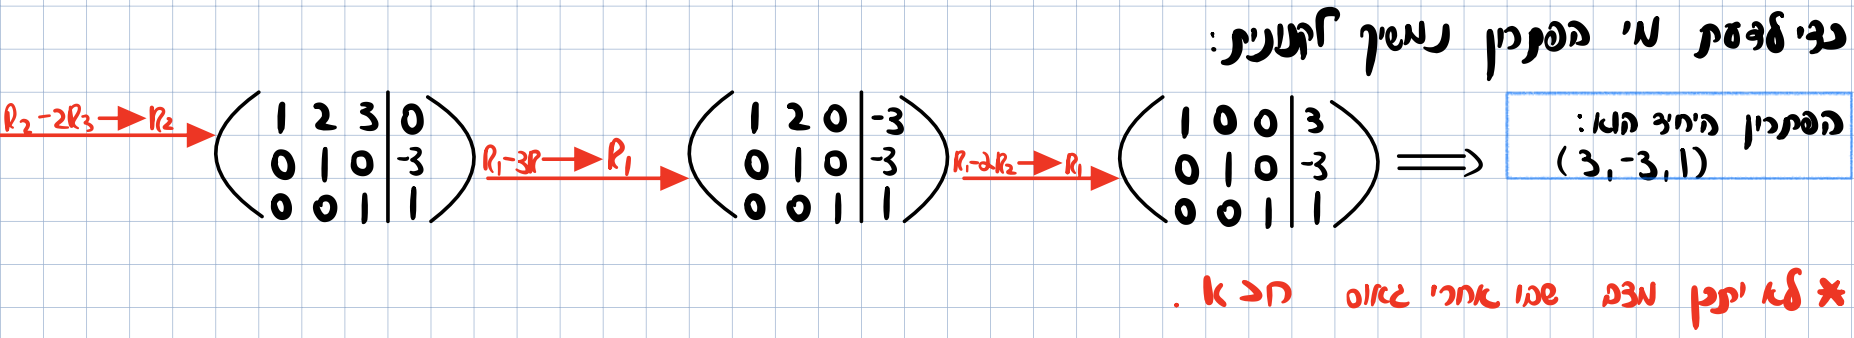 כדי לדעת מי הפתרון נמשיך לקנונית:
R₂-2R₃→R₂
1 2 3 | 0
0 1 0 | -3
0 0 1 | 1
R₁-3R→R₁
1 2 0 | -3
0 1 0 | -3
0 0 1 | 1
R₁-2R₂→R₁
1 0 0 | 3
0 1 0 | -3
0 0 1 | 1
⟹
הפתרון היחיד הוא:
(3,-3,1)
* לא יתכן מצב שבו אחרי גאוס